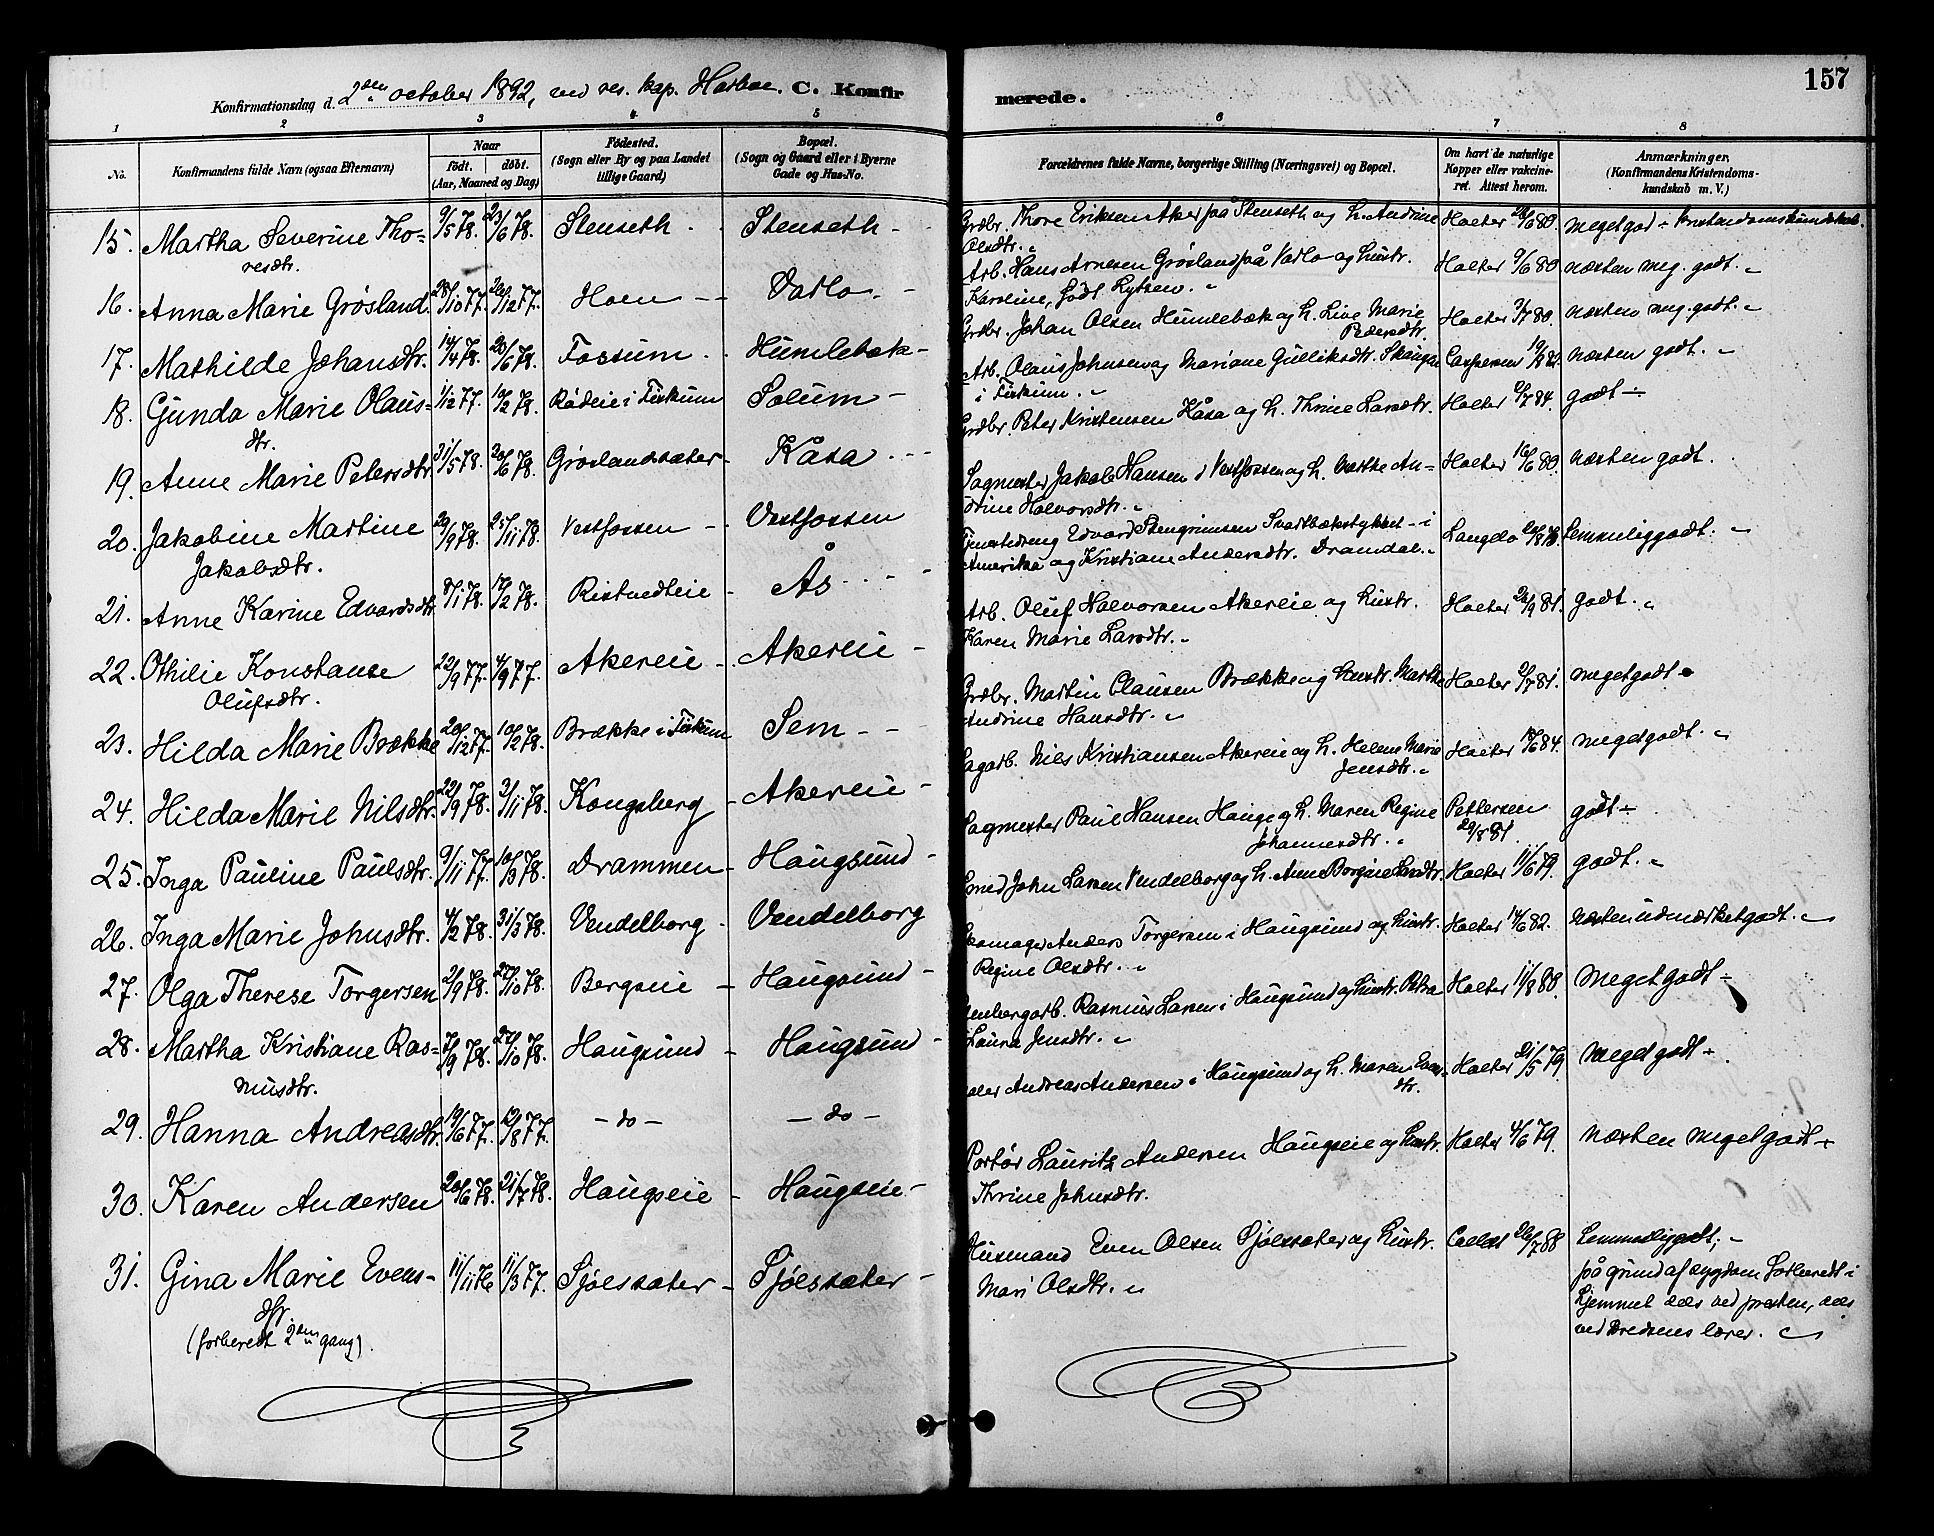 Konfirmationsdag d. 2den october 1892, ved res. kap. C. Konfirmerede. 157
1 2 3 4 5 6 7 8
No. Konfirmandens fulde Navn (ogsaa Efternavn) Naar født. døbt. (Aar, Maaned og Dag) Fødested. (Sogn eller By og paa Landet tillige Gaard) Bopæl. (Sogn og Gaard eller i Byerne Gade og Hus-No. Forældrenes fulde Navne, borgerlige Stilling (Næringsvei) og Bopæl. Om havt de naturlige Kopper eller vakcineret. Attest herom. Anmærkninger. (Konfirmandens Kristendomskundskab m. V.)
15. Martha Severine Thoresdtr. 9/5 78. 23/6 78. Stenseth Stenseth Grdbr. Thore Eriksen Aker på Stenseth og h. Andrine Olsdtr. Holter 80. meget god kristendomskundskab.
16. Anna Marie Grøsland 28/10 77. 26/12 77. Hoen Varlo Arb. Hans Arnesen Grøsland på Varlo og hustr. Karoline, født Lytsen. Holter 9/6 80. næsten meg. godt.
17. Mathilde Johansdtr. 14/4 78. 78. Fossum Humlebæk Grdbr. Johan Olsen Humlebæk og h. Live Marie Pedersdtr. Holter 80. næsten meg. godt.
18. Gunda Marie Olausdtr. 1/12 77. 10/2 78. Rødeie i Fiskum Solum Arb. Olaus Johnsen og Mariane Gulliksdtr. Skaugen i Fiskum. Caspersen 82. næsten godt.
19. Anne Marie Petersdtr. 31/5 78. 78. Grøslandsæter Kåsa Grdbr. Peter Kristensen Kåsa og h. Thrine Larsdtr. Holter 84. godt
20. Jakobine Martine Jakobsdtr. 29/9 78. 25/11 78. Vestfossen Vestfossen Sagmester Jakob Hansen i Vestfossen og h. Marthe Andrine Halvorsdtr. Holter 16/6 80. næsten godt.
21. Anne Karine Edvardsdtr. 8/1 78. 17/2 78. Ristvedteie Ås Tjenestedreng Edvard Stengrimsen Svartbækstykket i Amerika og Kristiane Andersdtr. Dramdal. Langslo temmelig godt.
22. Othilie Konstanse Olufsdtr. 22/9 77. 4/9 77. Akereie Akereie Arb. Oluf Halvorsen Akereie og hustr. Karen Marie Larsdtr. Holter 81. godt.
23. Hilda Marie Brække 20/12 77. 10/2 78. Brække i Fiskum Sem Grdbr. Martin Clausen Brække og hustr. Marthe Andrine Hansdtr. Holter 81. meget godt
24. Hilda Marie Nilsdtr. 22/9 78. 3/11 78. Kongsberg Akereie Sagarb. Nils Kristiansen Akereie og h. Helene Marie Jensdtr. Holter 84. meget godt.
25. Inga Pauline Paulsdtr. 9/11 77. 10/3 78. Drammen Haugsund Sagmester Paul Hansen Hauge og h. Maren Regine Johannesdtr. Pettersen 29/8 81. godt
26. Inga Marie Johnsdtr. 4/2 78. 31/3 78. Vendelborg Vendelborg Smed John Larsen Vendelborg og h. Anne Borgine Larsdtr. Holter 11/6 79. godt.
27. Olga Therese Torgersen 2/9 78. 27/10 78. Bergseie Haugsund Skomager Anders Torgersen i Haugsund og hustr. Regine Olsdtr. Holter 14/6 82. næsten udmærket godt.
28. Martha Kristiane Rasmusdtr. 7/9 78. 27/10 78. Haugsund Haugsund Rasmus Larsen i Haugsund og hustr. Petra Laura Jensdtr. Holter 11/8 80. meget godt
29. Hanna Andreasdtr. 19/6 77. 19/8 77. - do - - do - Andreas Andersen i Haugsund og h. Maren Holter 21/5 79. meget godt
30. Karen Andersen 20/6 78. 21/7 78. Haugseie Haugseie Portør Lauritz Andersen Haugseie og hustr. Thrine Johnsdtr. Holter 4/6 79. næsten meget godt
31. Gina Marie Evensdtr (forberedt 2den gang). 11/11 76 11/3 77. Sjølssæter Sjølssæter Husmand Even Olsen Sjølssæter og hustr. Mari Olsdtr. 26/7 88 temmelig godt; på grund af sygdom forberedt i hjemmet dels ved presten, dels ved kredsens lærer.